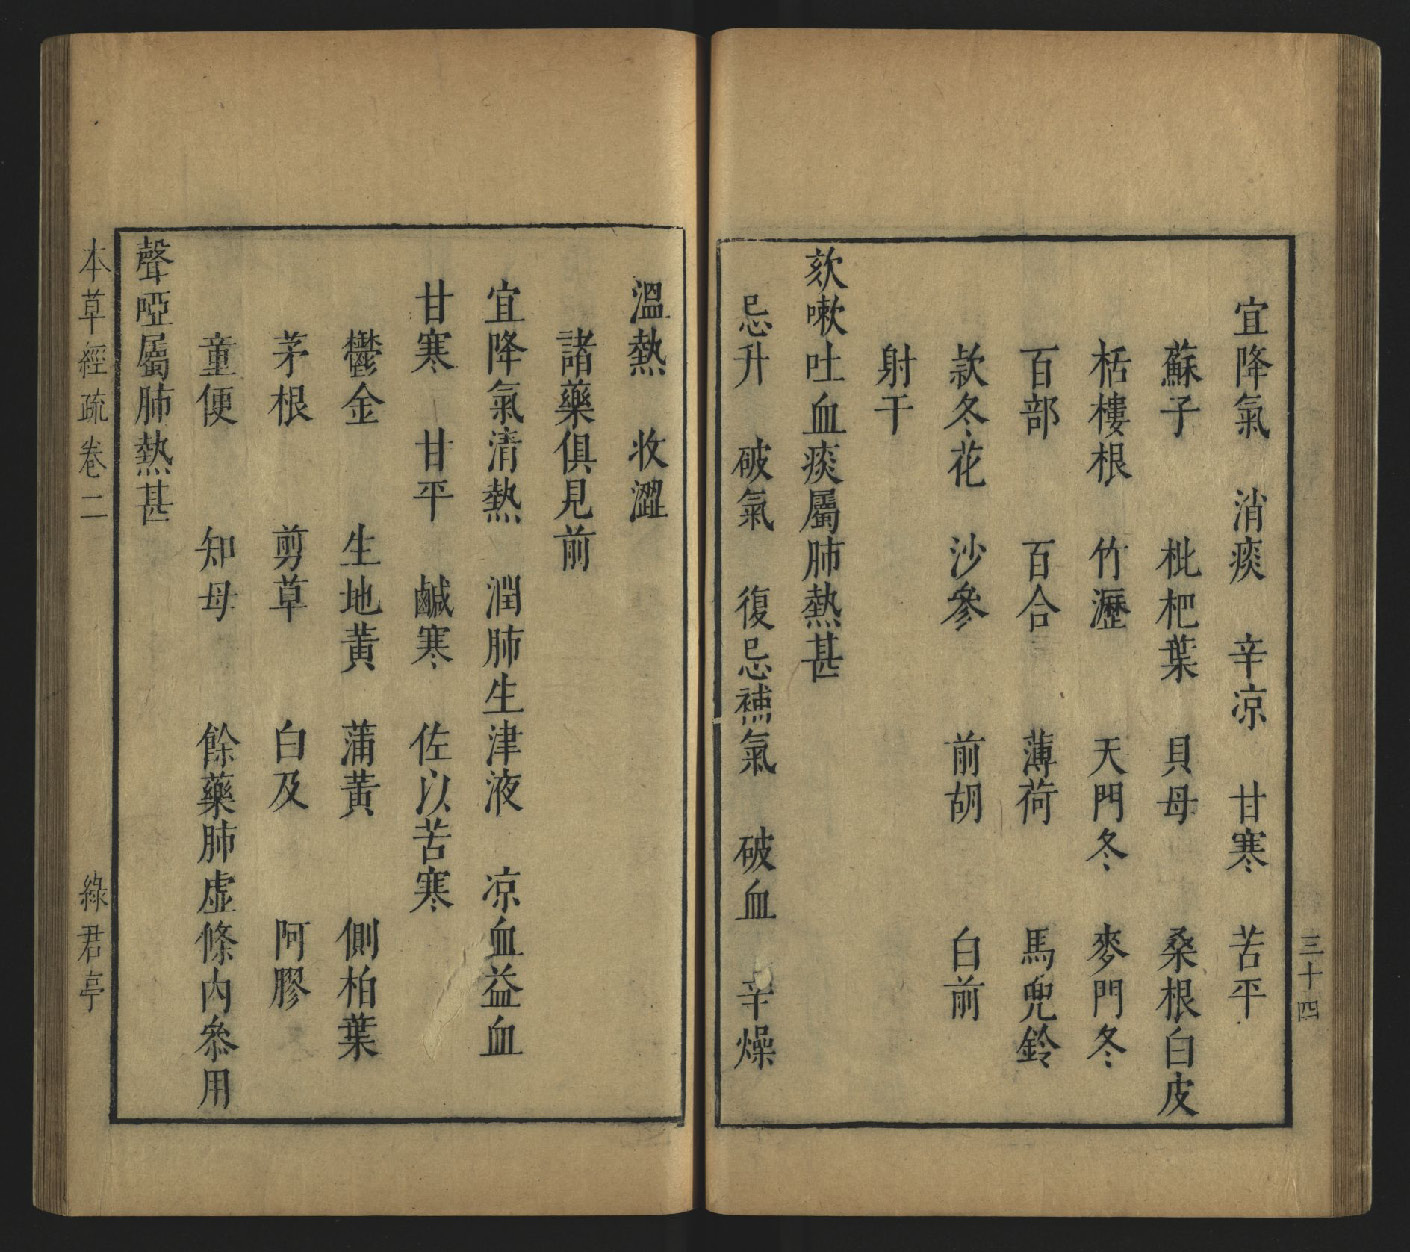 三十四
宜降氣　消痰　辛凉　甘寒　苦平
蘇子　枇杷葉　貝母　桑根白皮
栝樓根　竹瀝　天門冬　麥門冬
百部　百合　薄荷　馬兜鈴
款冬花　沙參　前胡　白前
射干
欬嗽吐血痰屬肺熱甚
忌升　破氣　復忌補氣　破血　辛燥
溫熱　收澀
諸藥俱見前
宜降氣清熱　潤肺生津液　凉血益血
甘寒　甘平　鹹寒　佐以苦寒
鬱金　生地黃　蒲黃　側柏葉
茅根　剪草　白及　阿膠
童便　知母　餘藥肺虛條內叅用
聲啞屬肺熱甚
本草經疏卷二　綠君亭